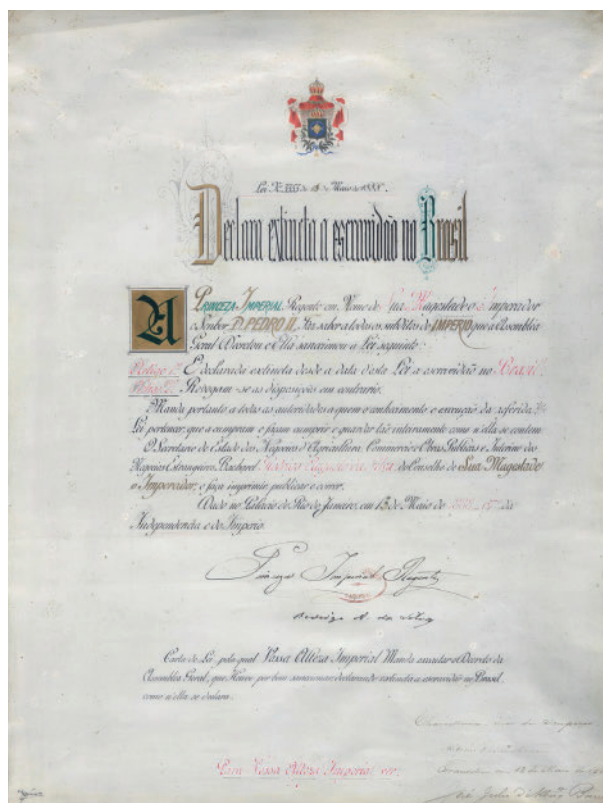 Lei N. 3353 de 13 de Maio de 1888.
Declara extincta a escravidão no Brasil
A PRINCEZA IMPERIAL Regente em Nome de Sua Magestade o Imperador
o Senhor D. PEDRO II, Faz saber a todos os subditos do IMPERIO que a Assembléa
Geral Decretou e Ella sanccionou a Lei seguinte:
Artigo 1º É declarada extincta desde a data desta Lei a escravidão no Brazil.
Revogam-se as disposições em contrario.
Manda portanto a todas as autoridades a quem o conhecimento e execução da referida
Lei pertencer, que a cumpram e façam cumprir e guardar tão inteiramente como n'ella se contem.
O Secretario de Estado dos Negocios d'Agricultura, Commercio e Obras Publicas e Interino dos
Negocios Estrangeiros, Bacharel Rodrigo Augusto da Silva, do Conselho de Sua Magestade
o Imperador, o faça imprimir, publicar e correr.
Dado no Palacio do Rio de Janeiro, em 13 de Maio de 1888, 67º da
Independencia e do Imperio.
Princeza Imperial Regente
Rodrigo A. da Silva
Carta de Lei, pela qual Vossa Alteza Imperial Manda executar o Decreto da
Assembléa Geral, que Houve por bem sanccionar, declarando extincta a escravidão no Brasil,
como n'ella se declara.
Para Vossa Alteza Imperial ver.